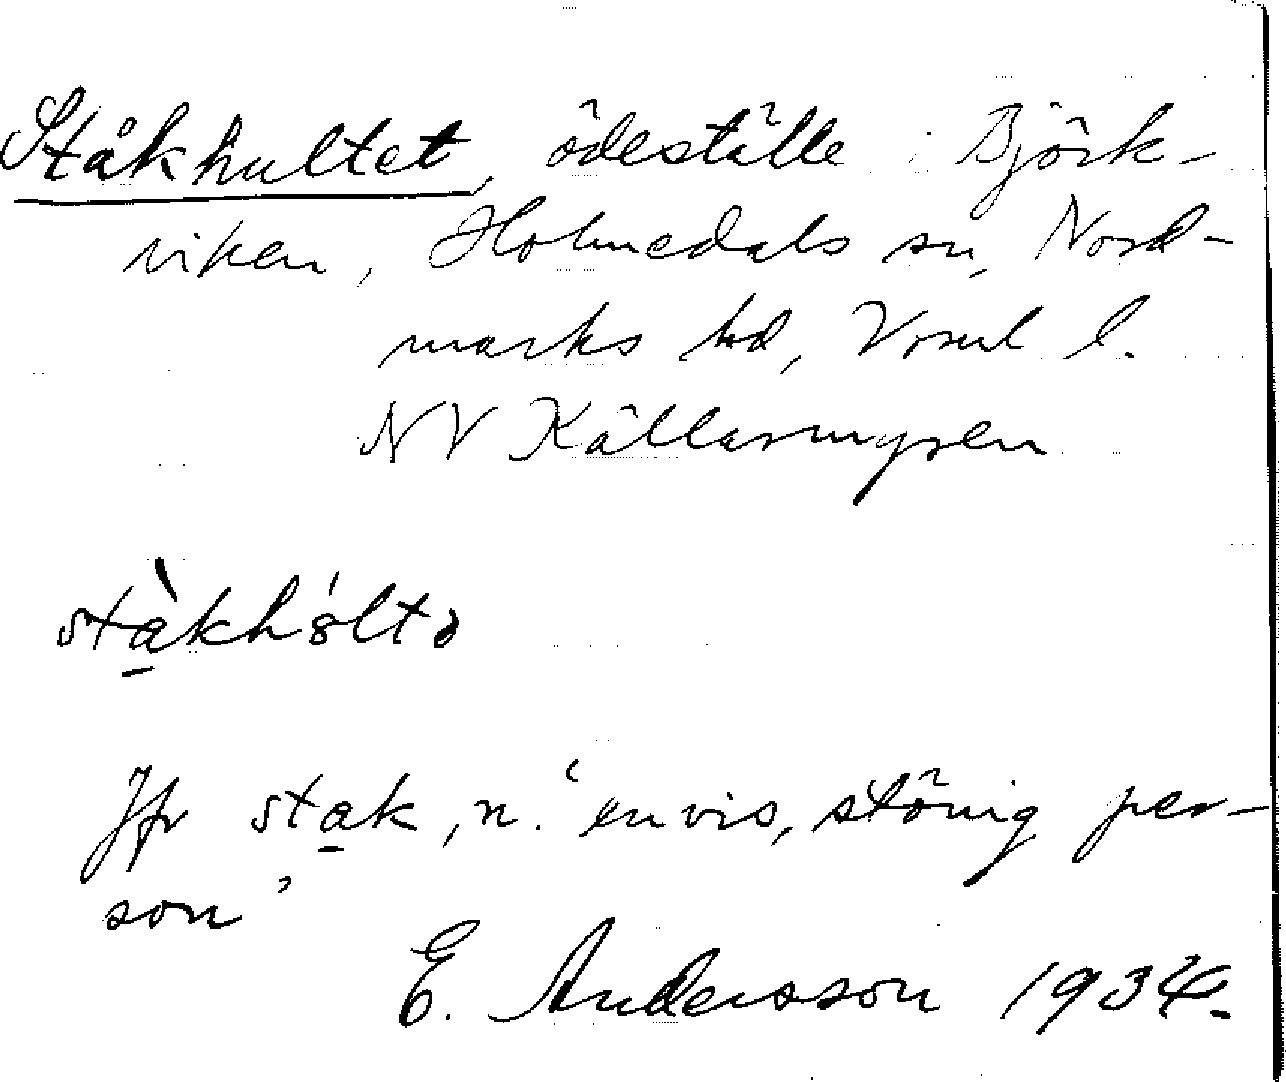 Ståkhultet, ödeställe i Björk-
viken, Holmedals sn, Nord-
marks hd, Vrml l.
NV Källarmyren
stа̀khо́ltə
Jfr stak, n. 'envis, stönig per-
son'
E. Andersson 1934.